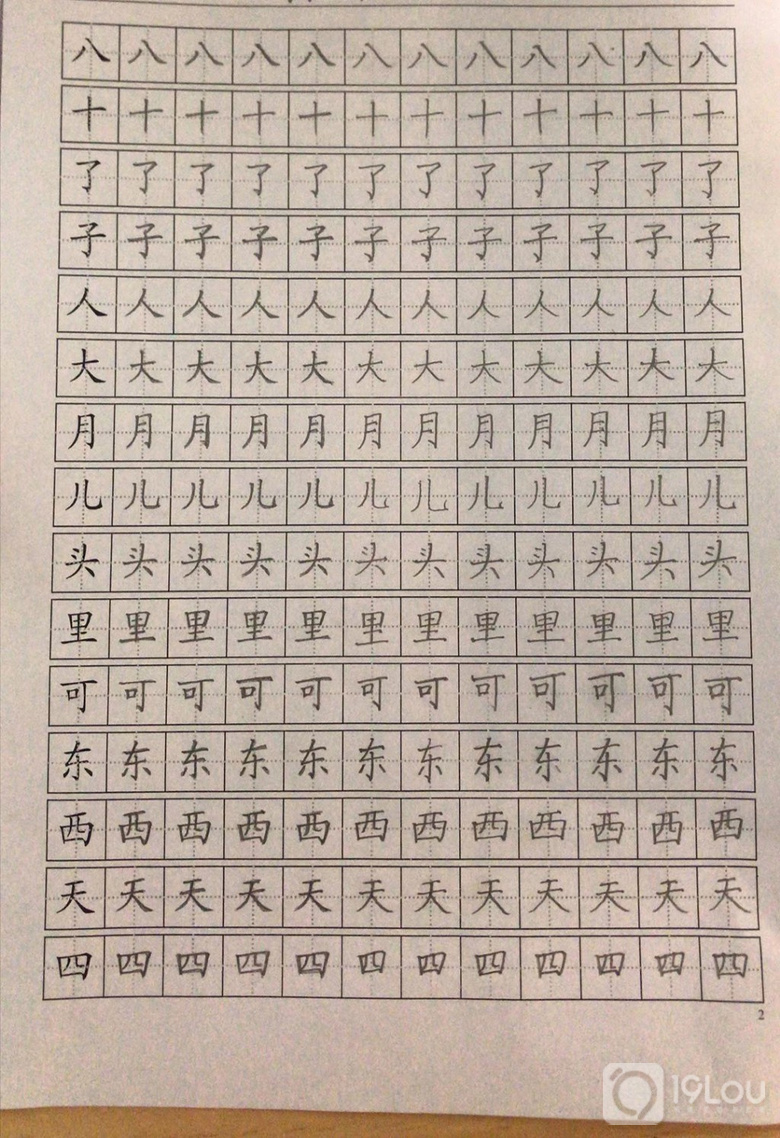 八八八八八八八八八八八八
十十十十十十十十十十十十
了了了了了了了了了了了了
子子子子子子子子子子子子
人人人人人人人人人人人人
大大大大大大大大大大大大
月月月月月月月月月月月月
儿儿儿儿儿儿儿儿儿儿儿儿
头头头头头头头头头头头头
里里里里里里里里里里里里
可可可可可可可可可可可可
东东东东东东东东东东东东
西西西西西西西西西西西西
天天天天天天天天天天天天
四四四四四四四四四四四四
2
19Lou